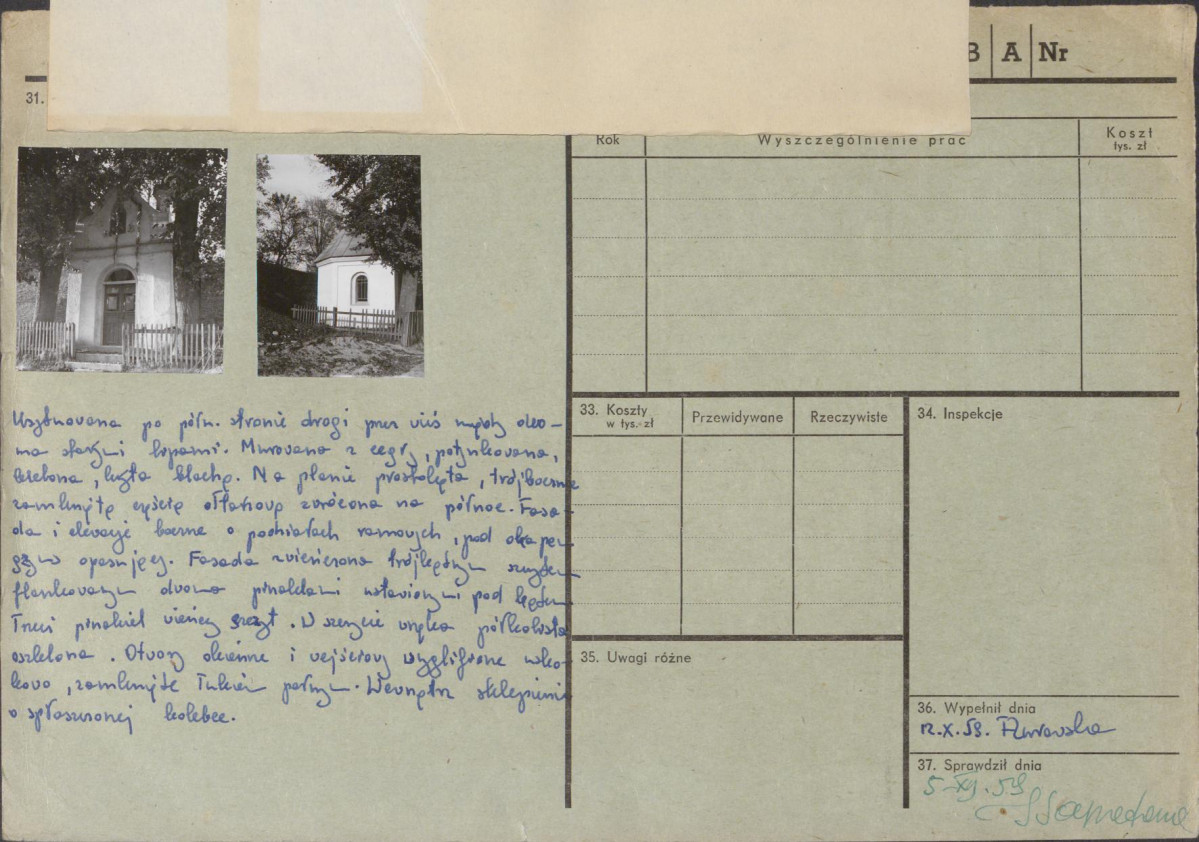 B A Nr
31.
Rok Wyszczególnienie prac Koszt
tys. zł
Usytuowana po półn. stronie drogi przez wieś między dwo-
ma starymi lipami. Murowana z cegły, potynkowana,
bielona, kryta blachą. Na planie prostokąta, trójbocznie
zamknięta częścią ołtarzową zwrócona na północ. Fasa-
da i elewacje boczne o podziałach ramowych, pod okapem
gzyms opasujący. Fasada zwieńczona trójkątnym szczytem
flankowanym dwoma pinaklami ustawionymi pod kątem
Trzeci pinakiel wieńczy szczyt. W szczycie wnęka półkolista
oszklona. Otwory okienne i wejściowy wyglifione
zamknięte łukiem pełnym. Wewnątrz sklepienie
o spłaszczonej kolebce.
33. Koszty
w tys. zł
Przewidywane Rzeczywiste
34. Inspekcje
35. Uwagi różne
36. Wypełnił dnia
12.X.59.
37. Sprawdził dnia
5 XII. 59